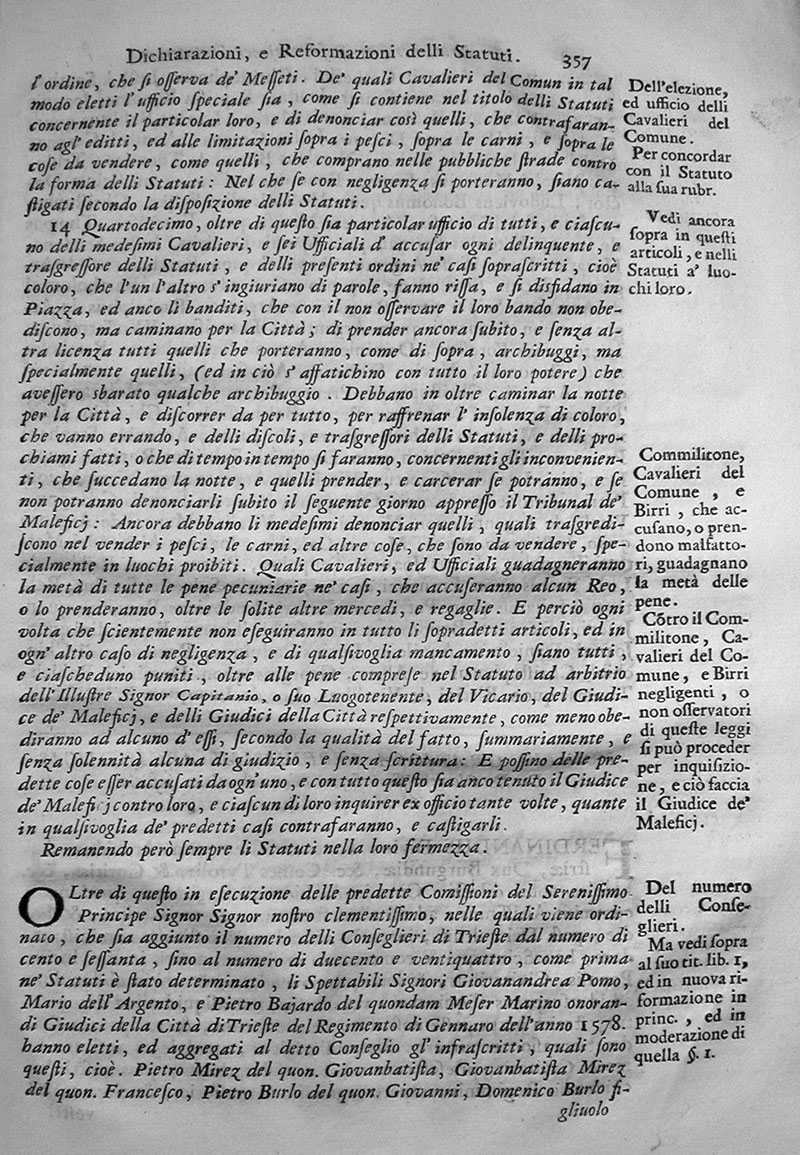 Dichiarazioni, e Reformazioni delli Statuti. 357
l'ordine, che ſi oſſerva de' Meſſeti. De' quali Cavalieri del Comun in tal
modo eletti l'ufficio ſpeciale ſia, come ſi contiene nel titolo delli Statuti
concernente il particolar loro, e di denonciar così quelli, che contrafaran-
no agl' editti, ed alle limitazioni ſopra i peſci, ſopra le carni, e ſopra le
coſe da vendere, come quelli, che comprano nelle pubbliche ſtrade contro
la forma delli Statuti: Nel che ſe con negligenza ſi porteranno, ſiano ca-
ſtigati ſecondo la diſpoſizione delli Statuti.
14 Quartodecimo, oltre di queſto ſia particolar ufficio di tutti, e ciaſcu-
no delli medeſimi Cavalieri, e ſei Ufficiali d' accuſar ogni delinquente, e
traſgreſſore delli Statuti, e delli preſenti ordini ne' caſi ſopraſcritti, cioè
coloro, che l'un l'altro s' ingiuriano di parole, fanno riſſa, e ſi disfidano in
Piazza, ed anco li banditi, che con il non oſſervare il loro bando non obe-
diſcono, ma caminano per la Città; di prender ancora ſubito, e ſenza al-
tra licenza tutti quelli che porteranno, come di ſopra, archibuggi, ma
ſpecialmente quelli, (ed in ciò s' affatichino con tutto il loro potere) che
aveſſero sbarato qualche archibuggio. Debbano in oltre caminar la notte
per la Città, e diſcorrer da per tutto, per raffrenar l' inſolenza di coloro,
che vanno errando, e delli diſcoli, e traſgreſſori delli Statuti, e delli pro-
chiami fatti, o che di tempo in tempo ſi faranno, concernenti gli inconvenien-
ti, che ſuccedano la notte, e quelli prender, e carcerar ſe potranno, e ſe
non potranno denonciarli ſubito il ſeguente giorno appreſſo il Tribunal de'
Maleficj: Ancora debbano li medeſimi denonciar quelli, quali traſgredi-
ſcono nel vender i peſci, le carni, ed altre coſe, che ſono da vendere, ſpe-
cialmente in luochi proibiti. Quali Cavalieri, ed Ufficiali guadagneranno
la metà di tutte le pene pecuniarie ne' caſi, che accuſeranno alcun Reo,
o lo prenderanno, oltre le ſolite altre mercedi, e regaglie. E perciò ogni
volta che ſcientemente non eſeguiranno in tutto li ſopradetti articoli, ed in
ogn' altro caſo di negligenza, e di qualſivoglia mancamento, ſiano tutti,
e ciaſcheduno puniti, oltre alle pene compreſe nel Statuto ad arbitrio
dell'Illuſtre Signor Capitanio, o ſuo Luogotenente, del Vicario, del Giudi-
ce de' Maleficj, e delli Giudici della Città reſpettivamente, come meno obe-
diranno ad alcuno d' eſſi, ſecondo la qualità del fatto, ſummariamente, e
ſenza ſolennità alcuna di giudizio, e ſenza ſcrittura: E poſſino delle pre-
dette coſe eſſer accuſati da ogn' uno, e con tutto queſto ſia anco tenuto il Giudice
de' Maleficj contro loro, e ciaſcun di loro inquirer ex officio tante volte, quante
in qualſivoglia de' predetti caſi contrafaranno, e caſtigarli.
Remanendo però ſempre li Statuti nella loro fermezza.
OLtre di queſto in eſecuzione delle predette Comiſſioni del Sereniſſimo
Principe Signor Signor noſtro clementiſſimo, nelle quali viene ordi-
nato, che ſia aggiunto il numero delli Conſeglieri di Trieſte dal numero di
cento e ſeſſanta, ſino al numero di duecento e ventiquattro, come prima
ne' Statuti è ſtato determinato, li Spettabili Signori Giovanandrea Pomo,
Mario dell'Argento, e Pietro Bajardo del quondam Meſer Marino onoran-
di Giudici della Città di Trieſte del Regimento di Gennaro dell'anno 1578.
hanno eletti, ed aggregati al detto Conſeglio gl' infraſcritti, quali ſono
queſti, cioè. Pietro Mirez del quon. Giovanbatiſta, Giovanbatiſta Mirez
del quon. Franceſco, Pietro Burlo del quon. Giovanni, Domenico Burlo fi-
gliuolo
Dell'elezione,
ed ufficio delli
Cavalieri del
Comune.
Per concordar
con il Statuto
alla ſua rubr.
Vedi ancora
ſopra in queſti
articoli, e nelli
Statuti a' luo-
chi loro.
Commilitone,
Cavalieri del
Comune, e
Birri, che ac-
cuſano, o pren-
dono malfatto-
ri, guadagnano
la metà delle
pene.
Cõtro il Com-
militone, Ca-
valieri del Co-
mune, e Birri
negligenti, o
non oſſervatori
di queſte leggi
ſi può proceder
per inquiſizio-
ne, e ciò faccia
il Giudice de'
Maleficj.
Del numero
delli Conſe-
glieri.
Ma vedi ſopra
al ſuo tit. lib. 1,
ed in nuova ri-
formazione in
princ., ed in
moderazione di
quella §. 1.